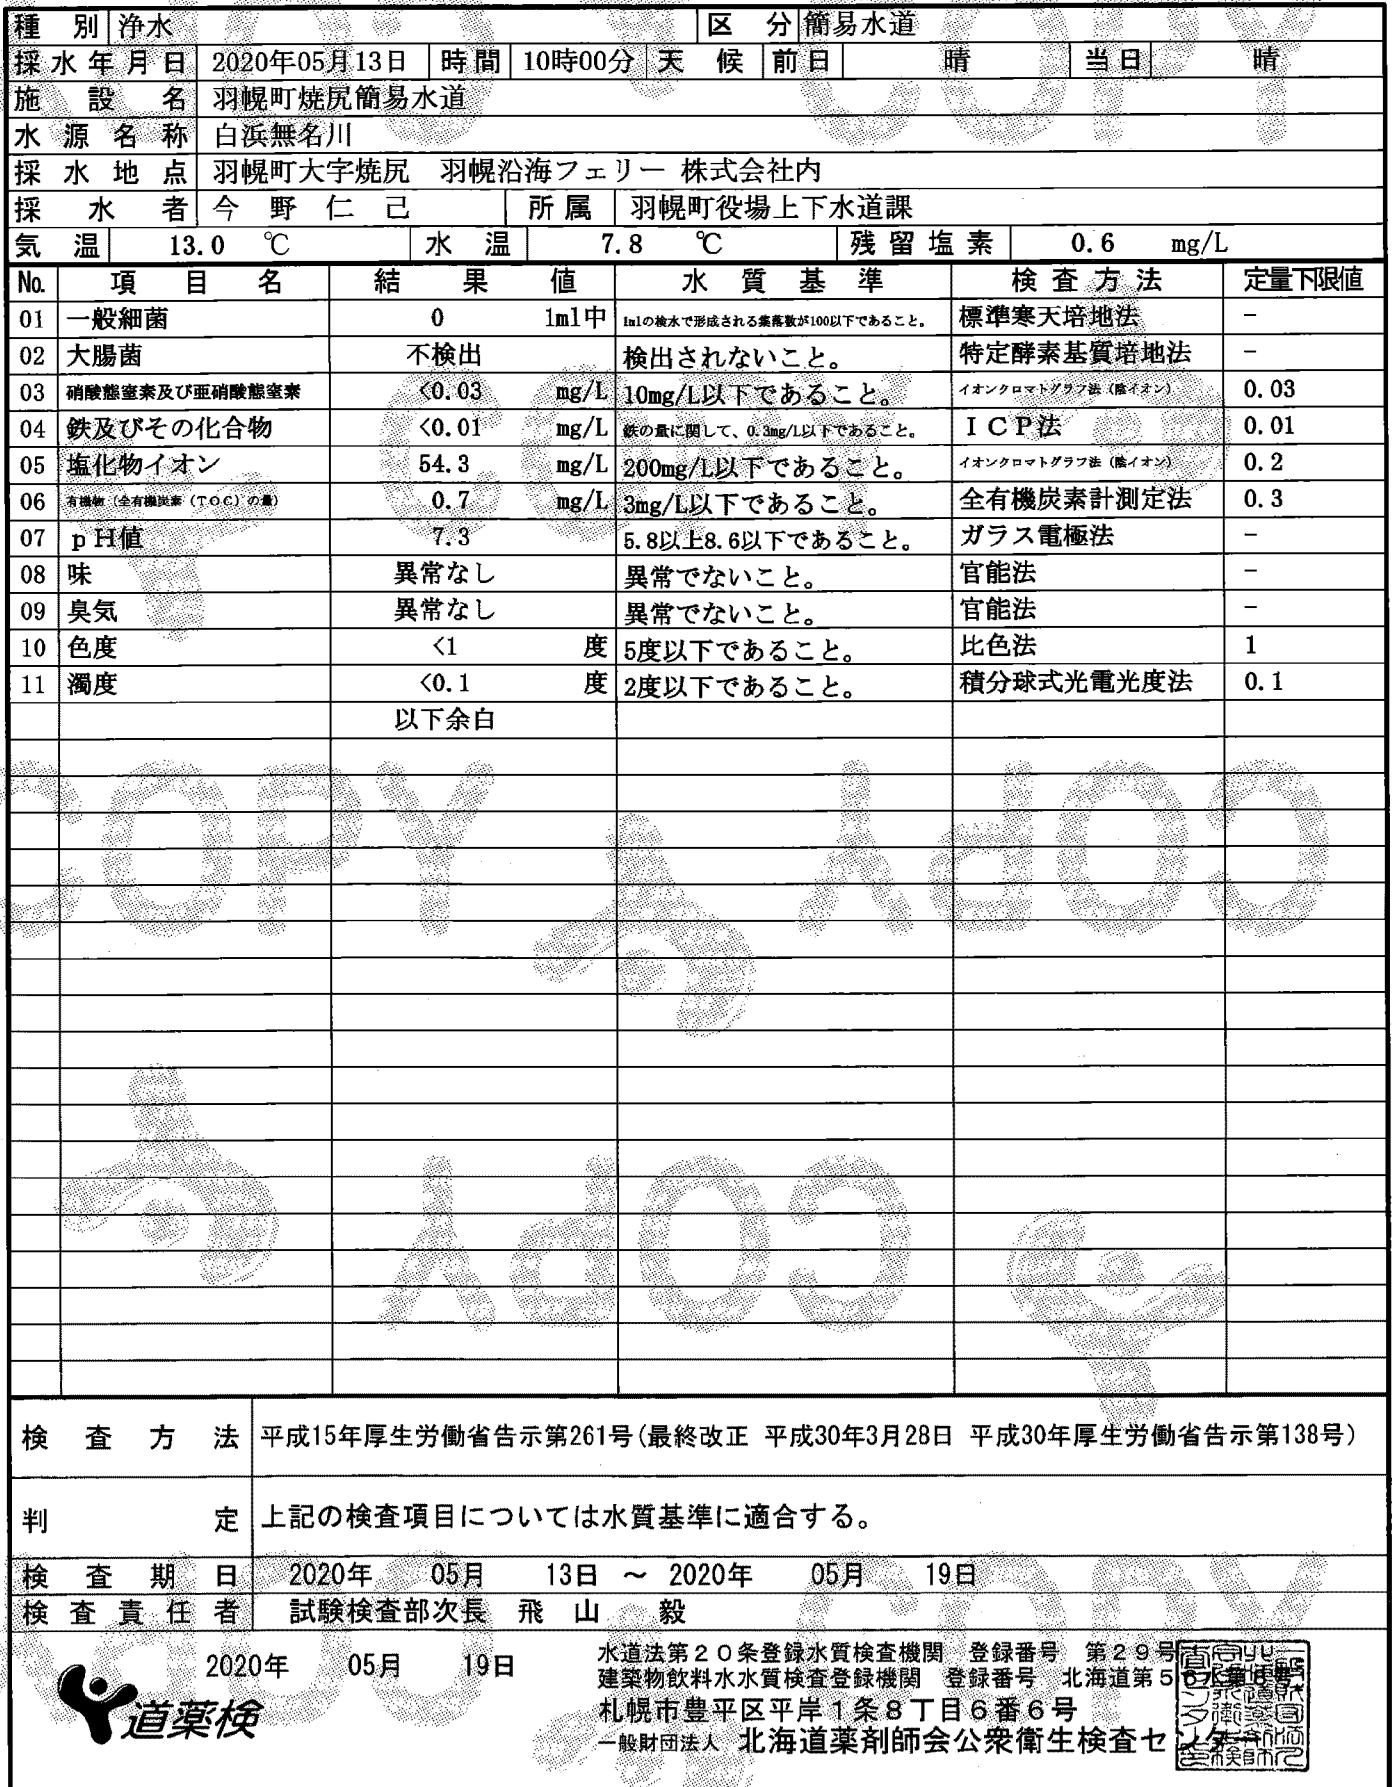 種別 浄水 区分 簡易水道
採水年月日 2020年05月13日 時間 10時00分 天候 前日 晴 当日 晴
施設名 羽幌町焼尻簡易水道
水源名称 白浜無名川
採水地点 羽幌町大字焼尻 羽幌沿海フェリー 株式会社内
採水者 今野仁己 所属 羽幌町役場上下水道課
気温 13.0 ℃ 水温 7.8 ℃ 残留塩素 0.6 mg/L
No. 項目名 結果値 水質基準 検査方法 定量下限値
01 一般細菌 0 1ml中 1mlの検水で形成される集落数が100以下であること。 標準寒天培地法 -
02 大腸菌 不検出 検出されないこと。 特定酵素基質培地法 -
03 硝酸態窒素及び亜硝酸態窒素 <0.03 mg/L 10mg/L以下であること。 イオンクロマトグラフ法（陰イオン） 0.03
04 鉄及びその化合物 <0.01 mg/L 鉄の量に関して、0.3mg/L以下であること。 ICP法 0.01
05 塩化物イオン 54.3 mg/L 200mg/L以下であること。 イオンクロマトグラフ法（陰イオン） 0.2
06 有機物（全有機炭素（TOC）の量） 0.7 mg/L 3mg/L以下であること。 全有機炭素計測定法 0.3
07 pH値 7.3 5.8以上8.6以下であること。 ガラス電極法 -
08 味 異常なし 異常でないこと。 官能法 -
09 臭気 異常なし 異常でないこと。 官能法 -
10 色度 <1 度 5度以下であること。 比色法 1
11 濁度 <0.1 度 2度以下であること。 積分球式光電光度法 0.1
以下余白
COPY COPY
COPY
検査方法 平成15年厚生労働省告示第261号(最終改正 平成30年3月28日 平成30年厚生労働省告示第138号)
判定 上記の検査項目については水質基準に適合する。
検査期日 2020年 05月 13日 ～ 2020年 05月 19日
検査責任者 試験検査部次長 飛山 毅
2020年 05月 19日
道薬検
水道法第２０条登録水質検査機関 登録番号 第２９号
建築物飲料水水質検査登録機関 登録番号 北海道第５
札幌市豊平区平岸１条８丁目６番６号
一般財団法人 北海道薬剤師会公衆衛生検査センター